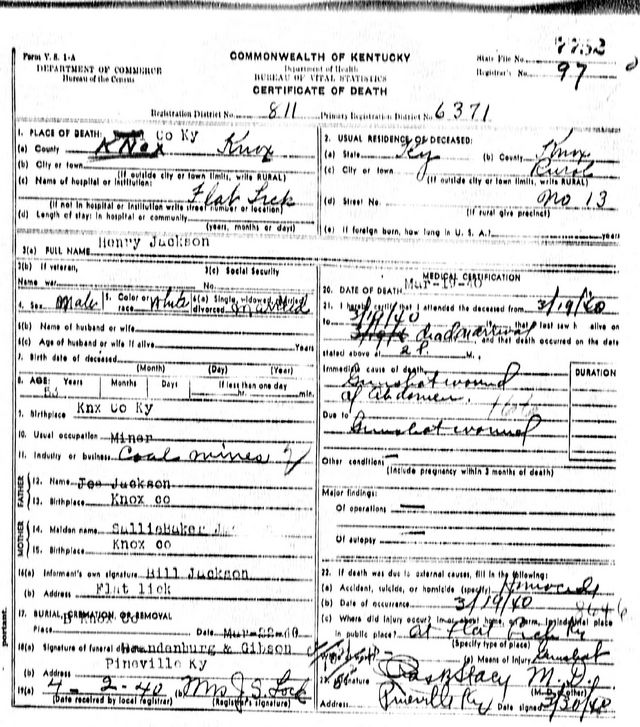 7732
Form V. S. 1-A
COMMONWEALTH OF KENTUCKY
State File No.
DEPARTMENT OF COMMERCE
Bureau of the Census
Department of Health
BUREAU OF VITAL STATISTICS
Registrar's No. 97
CERTIFICATE OF DEATH
Registration District No. 811 Primary Registration District No. 6371
1. PLACE OF DEATH: Co Ky
(a) County Knox Knox
(b) City or town
(If outside city or town limits, write RURAL)
(c) Name of hospital or institution: Flat Lick
(If not in hospital or institution write street number or location)
(d) Length of stay: In hospital or community
(years, months or days)
2. USUAL RESIDENCE OF DECEASED:
(a) State Ky (b) County Knox
(c) City or town Rural
(If outside city or town limits, write RURAL)
(d) Street No. No 13
(If rural give precinct)
(e) If foreign born, how long in U. S. A.? years
3(a) FULL NAME Henry Jackson
3(b) If veteran, 3(c) Social Security
Name war No.
4. Sex Male 5. Color or race White 6(a) Single, widowed, married, divorced Married
6(b) Name of husband or wife
6(c) Age of husband or wife if alive Years
7. Birth date of deceased
(Month) (Day) (Year)
8. AGE: Years Months Days If less than one day
hr. min.
9. Birthplace Knx Co Ky
10. Usual occupation Miner
11. Industry or business Coal mines
FATHER
12. Name Joe Jackson
13. Birthplace Knox co
MOTHER
14. Maiden name SallieBaker
15. Birthplace Knox co
16(a) Informant's own signature Bill Jackson
(b) Address Flat lick
17. BURIAL, CREMATION, OR REMOVAL
Place Knox Co Date Mar-22-40
18(a) Signature of funeral director Brandenburg & Gibson
Pineville Ky
(b) Address
19(a) 4-2-40 (b) Mrs J S Lock
(Date received by local registrar) (Registrar's signature)
MEDICAL CERTIFICATION
20. DATE OF DEATH Mar-19-40
21. I hereby certify that I attended the deceased from 3/19/40
to 3/19/40 that I last saw h alive on
dead on arrival and that death occurred on the date
stated above at 2 P. M.,
Immediate cause of death DURATION
Gunshot wound
of Abdomen.
Due to
Gunshot wound
Other conditions
(Include pregnancy within 3 months of death)
Major findings:
Of operations
Of autopsy
22. If death was due to external causes, fill in the following:
(a) Accident, suicide, or homicide (specify) Homicide
(b) Date of occurrence 3/19/40
(c) Where did injury occur? In or about home, on farm, in industrial place
in public place? at Flat Lick Ky
(Specify type of place)
(e) Means of Injury Gunshot
23. Signature Stacy M. D.
(M. D. or other)
Address Pineville Ky Date signed 3/30/40
portant.